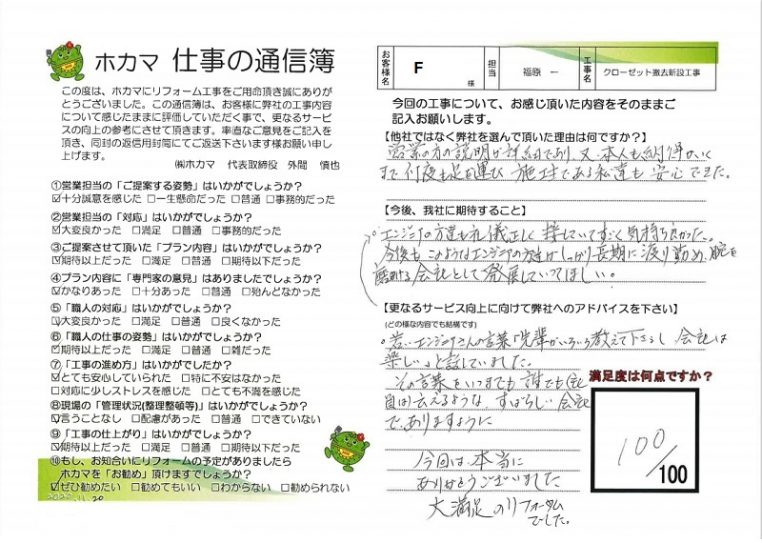 ホカマ 仕事の通信簿
この度は、ホカマにリフォーム工事をご用命頂き誠にありが
とうございました。この通信簿は、お客様に弊社の工事内容
について感じたままに評価していただく事で、更なるサービ
スの向上の参考にさせて頂きます。率直なご意見をご記入を
頂き、同封の返信用封筒にてご返送下さいます様お願い申し
上げます。
㈱ホカマ 代表取締役 外間 慎也
①営業担当の「ご提案する姿勢」はいかがでしょうか?
☑十分誠意を感じた □一生懸命だった □普通 □事務的だった
②営業担当の「対応」はいかがでしょうか?
☑大変良かった □満足 □普通 □事務的だった
③ご提案させて頂いた「プラン内容」はいかがでしょうか?
☑期待以上だった □満足 □普通 □期待以下だった
④プラン内容に「専門家の意見」はありましたでしょうか?
☑かなりあった □十分あった □普通 □殆んどなかった
⑤「職人の対応」はいかがでしょうか?
☑大変良かった □満足 □普通 □良くなかった
⑥「職人の仕事の姿勢」はいかがでしょうか?
☑期待以上だった □満足 □普通 □雑だった
⑦「工事の進め方」はいかがでしたでしょうか?
☑とても安心していられた □特に不安はなかった
□対応に少しストレスを感じた □とても不満を感じた
⑧現場の「管理状況(整理整頓等)」はいかがでしょうか?
☑言うことなし □配慮があった □普通 □できていない
⑨「工事の仕上がり」はいかがでしょうか?
☑期待以上だった □満足 □普通 □期待以下だった
⑩もし、お知合いにリフォームの予定がありましたら
ホカマを「お勧め」頂けますでしょうか?
☑ぜひ勧めたい □勧めてもいい □わからない □勧められない
お客様名 F 様 担当 福原 一 工事名 クローゼット撤去新設工事
今回の工事について、お感じ頂いた内容をそのままご
記入お願します。
【他社ではなく弊社を選んで頂いた理由は何ですか?】
営業の方の説明が詳細であり、又、本人も納得がいく
まで何度も足を運び 施主である私達も安心できた。
【今後、我社に期待すること】
・エンジニアの方達も礼儀正しく接していてすごく気持ち良かった。
今後もこのようなエンジニアの方達がしっかり長期に渡り勤め、腕を
磨ける会社として発展していってほしい。
【更なるサービス向上に向けて弊社へのアドバイスを下さい】
(どの様な内容でも結構です)
・若いエンジニアさんの言葉「先輩がいろいろ教えて下さるし、会社は
楽しい」と話していました。
その言葉をいつまでも 誰でも
言えるような、すばらしい会社
で、ありますように
今回は本当に
ありがとうございました
大満足のリフォーム
でした。
満足度は何点ですか?
100/100